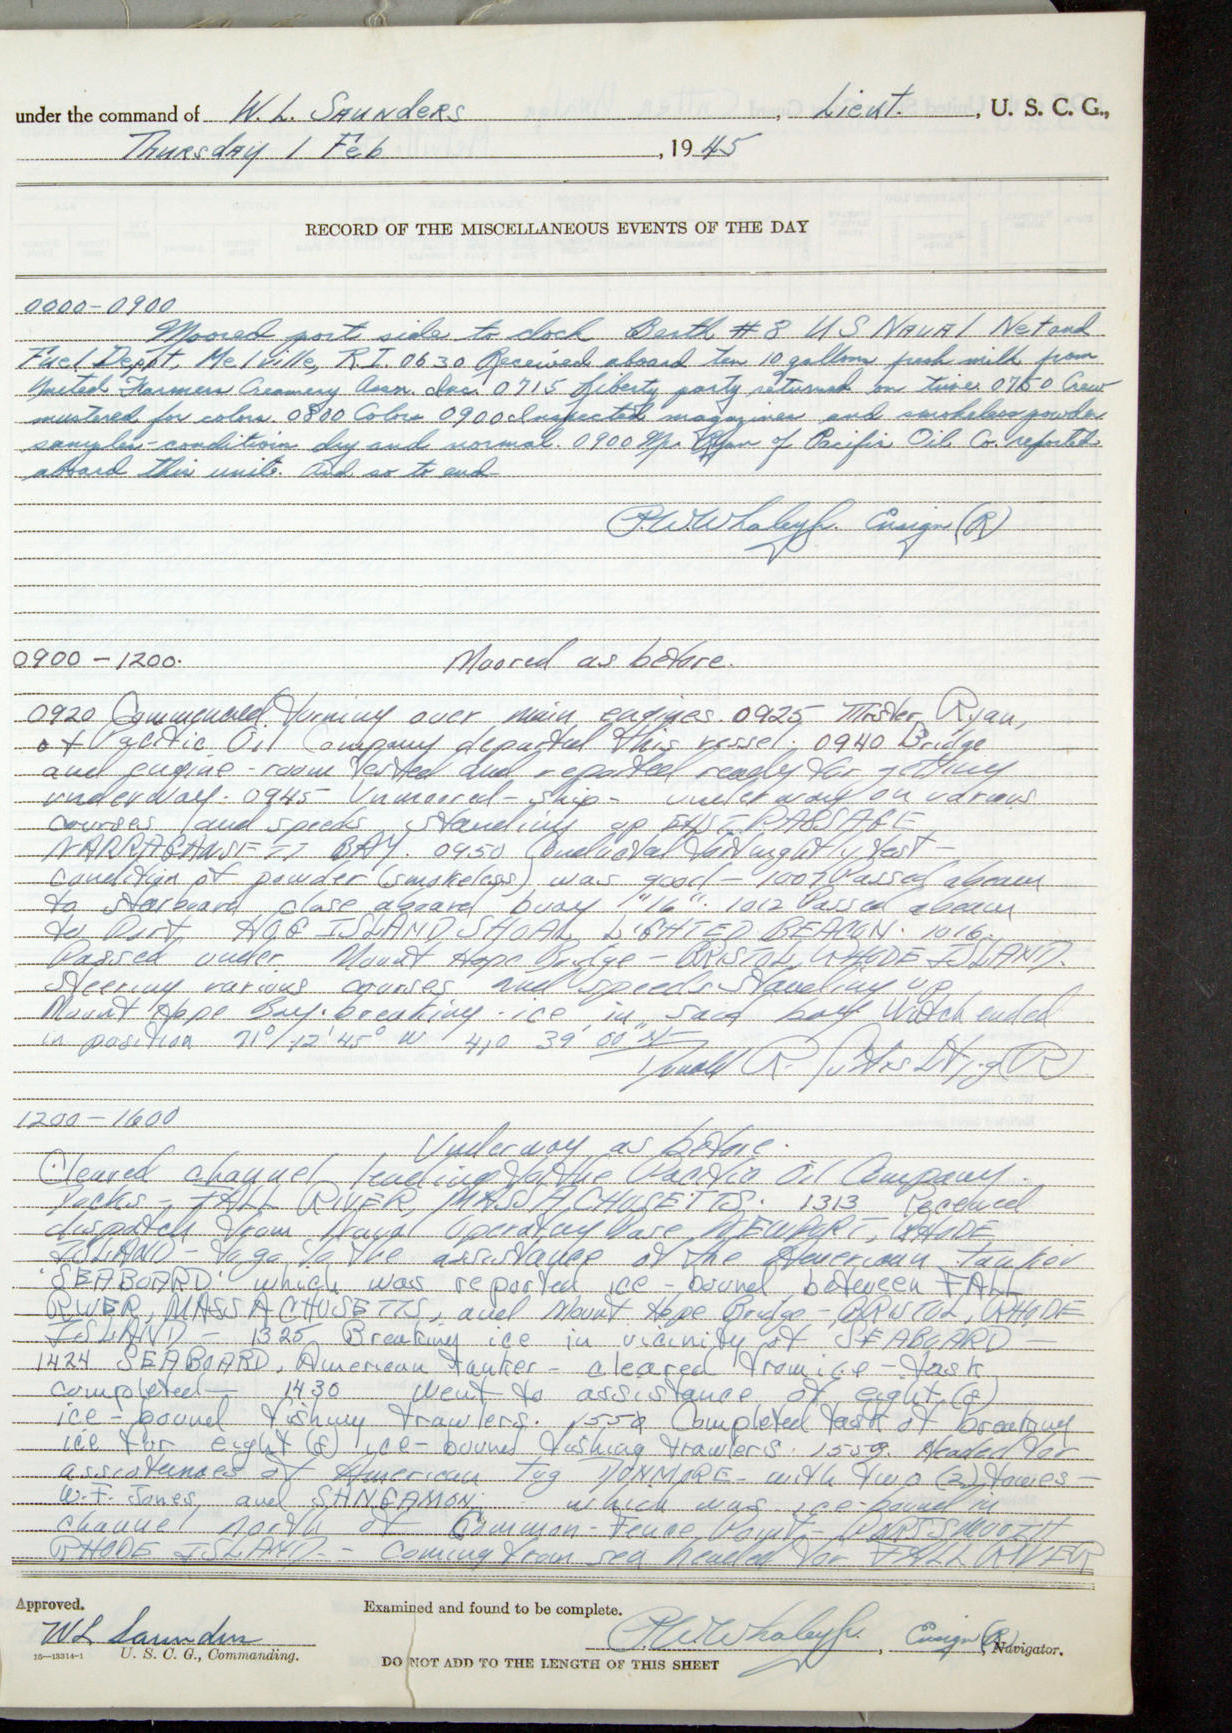 under the command of W. L. Saunders, Lieut., U. S. C. G.,
Thursday 1 Feb, 1945
RECORD OF THE MISCELLANEOUS EVENTS OF THE DAY
0000-0900
Moored port side to dock Berth #8 US Naval Net and
Fuel Depot, Melville, R.I. 0630 Received aboard ten 10 gallons fresh milk from
United Farmers Creamery Assn. Inc. 0715 Liberty party returned on time. 0750 Crew
mustered for colors. 0800 Colors 0900 Inspected magazines and smokeless powder
samples - condition dry and normal. 0900 Mr. Ryan of Pacific Oil Co. reported
aboard this unit. And so to end
P.W. Whaley Jr. Ensign (R)
0900-1200. Moored as before.
0920 Commenced turning over main engines. 0925 Mister Ryan,
of Pacific Oil Company departed this vessel. 0940 Bridge
and engine-room tested and reported ready for getting
underway. 0945 Unmoored - ship - underway on various
courses and speeds standing up EAST PASSAGE
NARRAGANSETT BAY. 0950 Conducted fortnightly test -
condition of powder (smokeless) was good - 1007 Passed abeam
to starboard close aboard buoy "16". 1012 Passed abeam
to Port HOG ISLAND SHOAL LIGHTED BEACON. 1016
Passed under Mount Hope Bridge - BRISTOL, RHODE ISLAND.
Steering various courses and speeds standing up
Mount Hope Bay. breaking ice in said bay. Watch ended
in position 71° 12' 45" W 41° 39' 00" N
Donald R. Lt. j.g. (R)
1200-1600
Underway as before.
Cleared channel leading to the Pacific Oil Company
Docks - FALL RIVER, MASSACHUSETTS. 1313 Received
dispatch from Naval Operating Base, NEWPORT, RHODE
ISLAND - to go to the assistance of the American tanker
'SEABOARD' which was reported ice-bound between FALL
RIVER, MASSACHUSETTS, and Mount Hope Bridge - BRISTOL, RHODE
ISLAND - 1325 Breaking ice in vicinity of SEABOARD -
1424 SEABOARD, American tanker - cleared from ice - task
completed - 1430 went to assistance of eight (8)
ice-bound fishing trawlers. 1550 Completed task of breaking
ice for eight (8) ice-bound fishing trawlers. 1559. Headed for
assistance of American Tug DONMORE - with two (2) towes -
W.T. Jones, and SANGAMON - which was ice-bound in
channel north of Common-Fence Point - PORTSMOUTH
RHODE ISLAND - Coming from sea headed for FALL RIVER
Approved. Examined and found to be complete.
W L Saunders P.W. Whaley Jr., Ensign (R), Navigator.
16—13314-1 U. S. C. G., Commanding.
DO NOT ADD TO THE LENGTH OF THIS SHEET